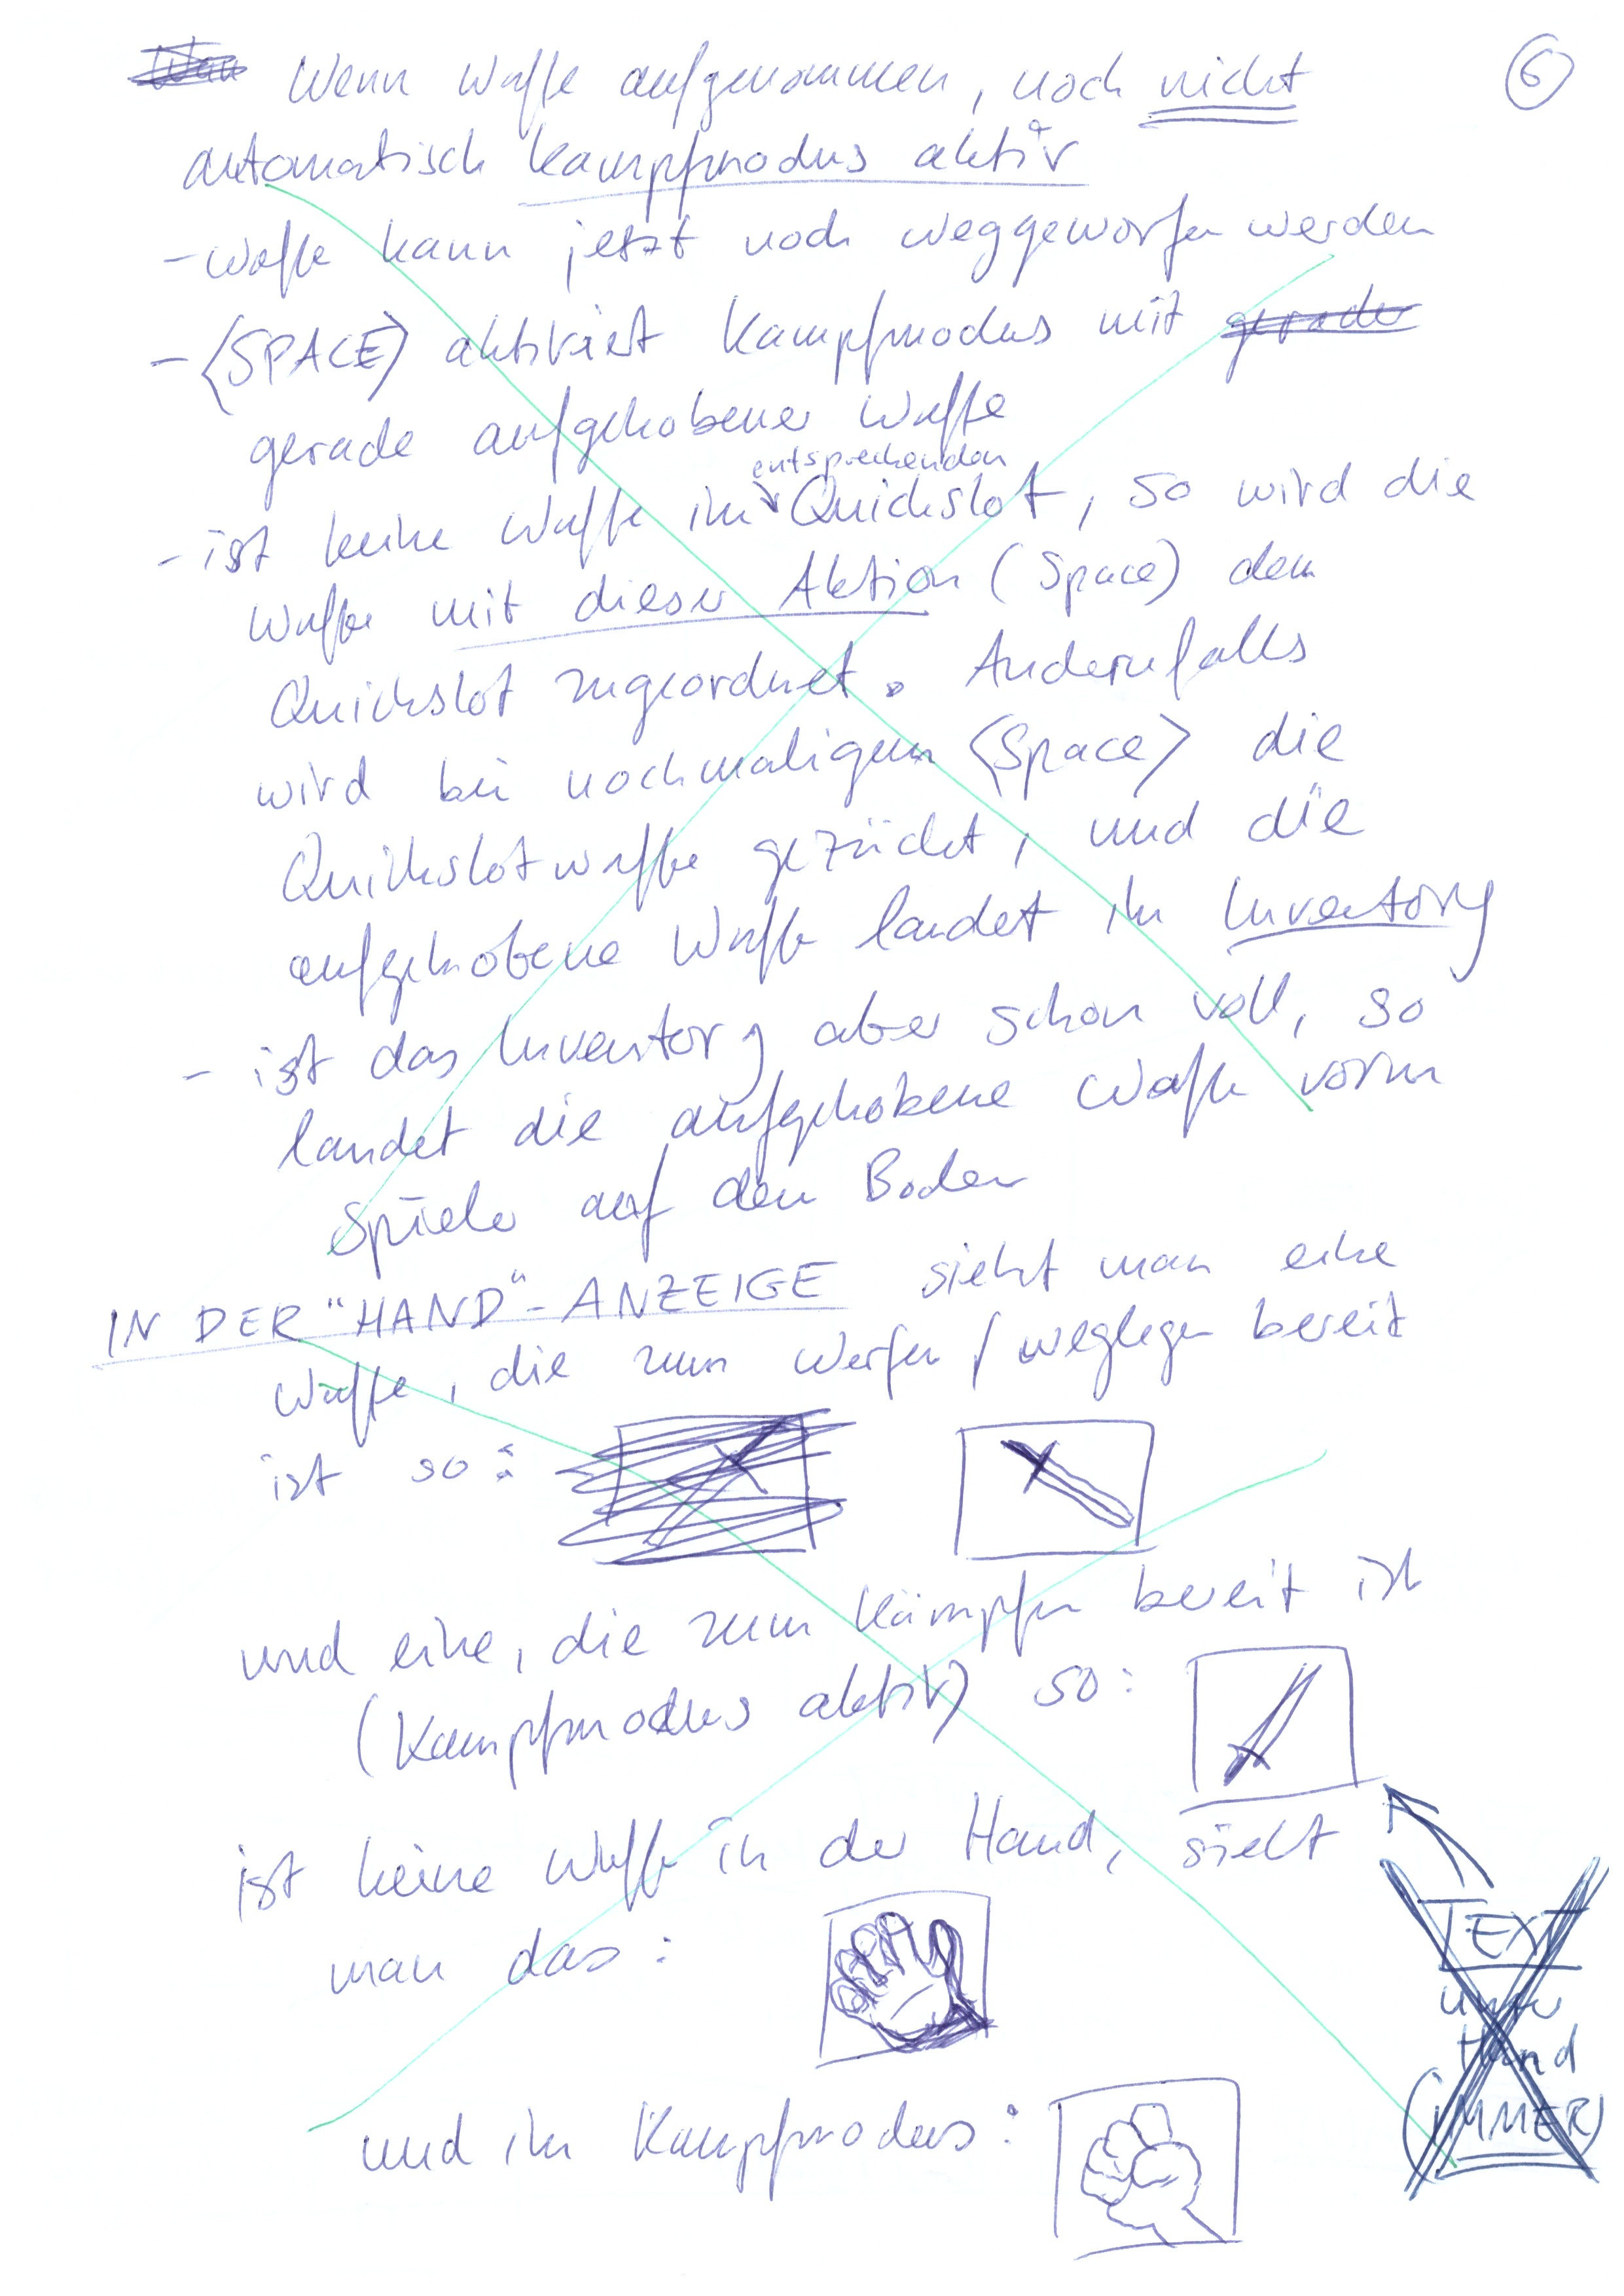 Wenn Waffe aufgenommen, noch nicht
6
automatisch Kampfmodus aktiv
- Waffe kann jetzt noch weggeworfen werden
- <SPACE> aktiviert Kampfmodus mit gerade
gerade aufgehobener Waffe
entsprechenden
- ist keine Waffe im Quickslot, so wird die
Waffe mit dieser Aktion (Space) dem
Quickslot zugeordnet. Andernfalls
wird bei nochmaligem <Space> die
Quickslotwaffe gezückt, und die
aufgehobene Waffe landet im Inventory
- ist das Inventory aber schon voll, so
landet die aufgehobene Waffe vorm
Spieler auf dem Boden
IN DER "HAND"-ANZEIGE sieht man eine
Waffe, die zum Werfen / weglegen bereit
ist so:
und eine, die zum Kämpfen bereit ist
(Kampfmodus aktiv) so:
ist keine Waffe in der Hand, sieht
man das:
TEXT
unter
Hand
(IMMER)
und im Kampfmodus: